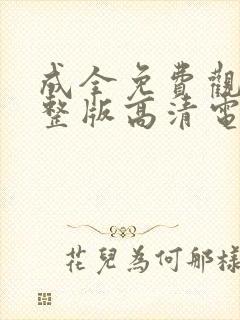 成全免費觀
整版高清電
花兒為何那樣